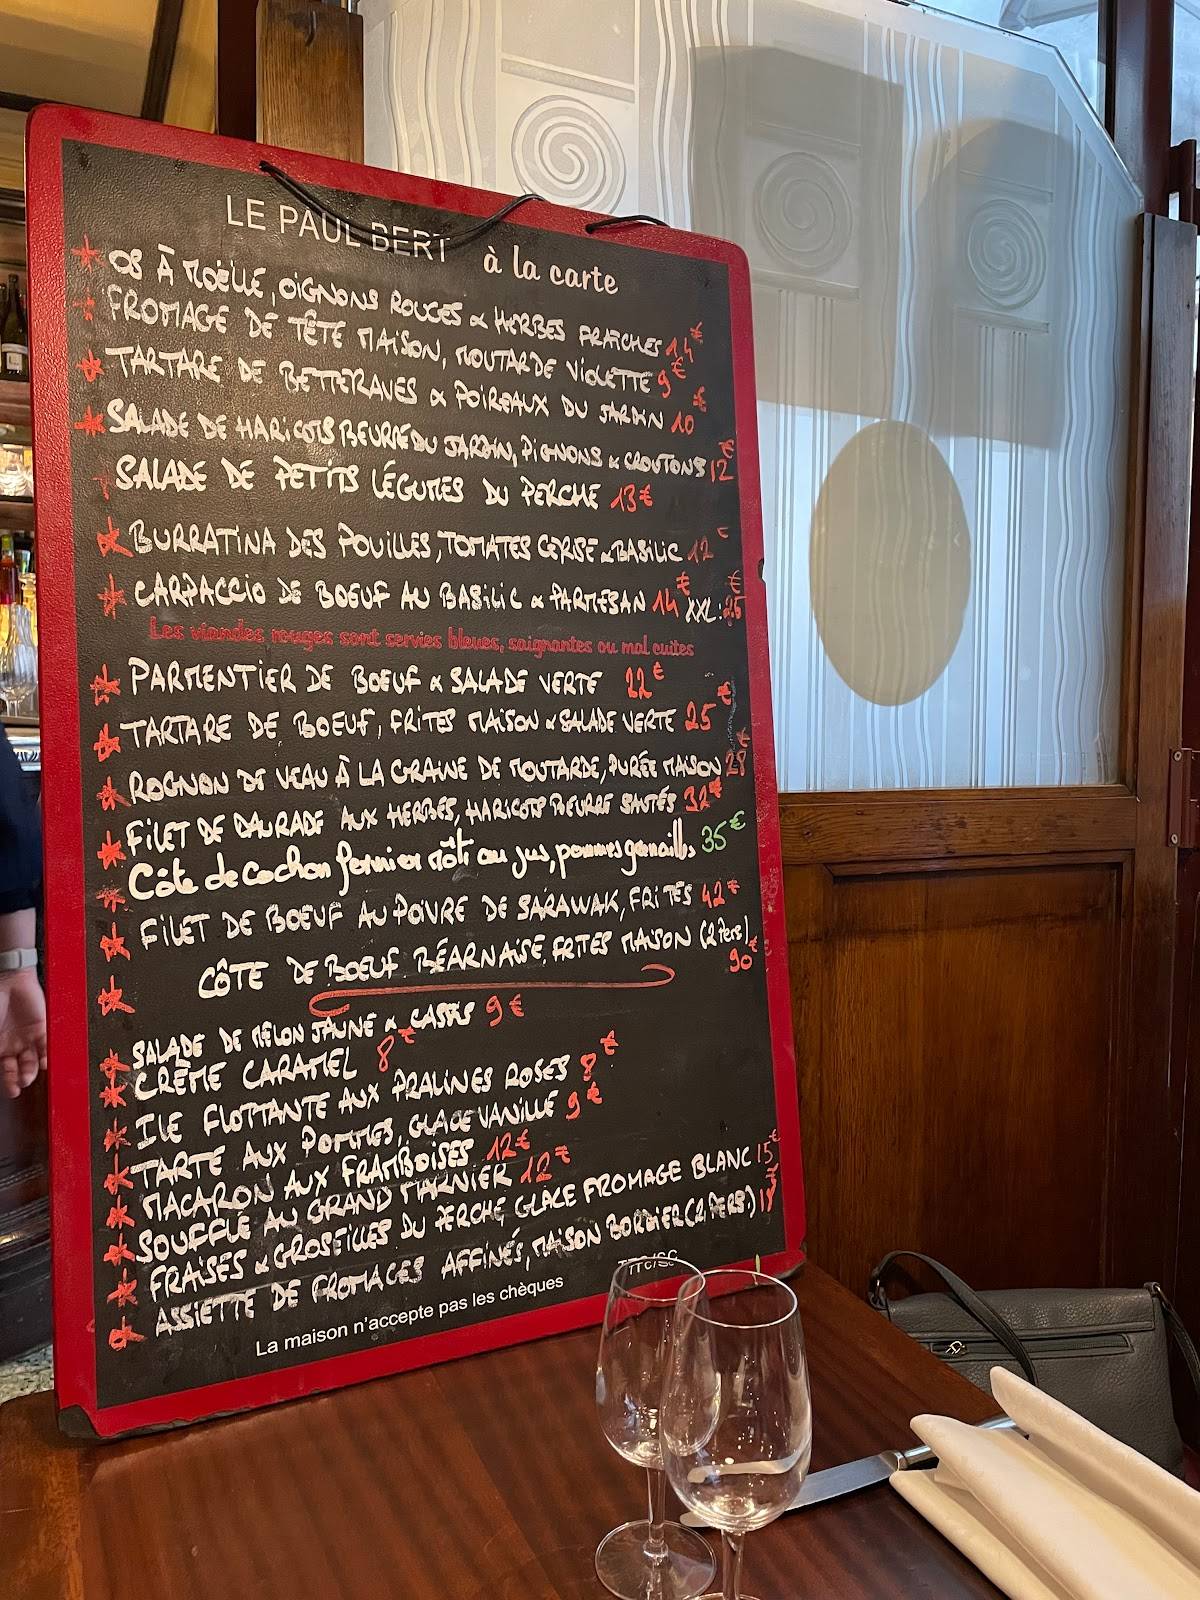 LE PAUL BERT à la carte
OS À MOËLLE, OIGNONS ROUGES & HERBES FRAICHES 14€
FROMAGE DE TÊTE MAISON, MOUTARDE VIOLETTE 9€
TARTARE DE BETTERAVES & POIREAUX DU JARDIN 10€
SALADE DE HARICOTS BEURRE DU JARDIN, PIGNONS & CROUTONS 12€
SALADE DE PETITS LÉGUMES DU PERCHE 13€
BURRATINA DES POUILLES, TOMATES CERISE & BASILIC 12€
CARPACCIO DE BOEUF AU BASILIC & PARMESAN 14€ XXL: 25€
Les viandes rouges sont servies bleues, saignantes ou mal cuites
PARMENTIER DE BOEUF & SALADE VERTE 22€
TARTARE DE BOEUF, FRITES MAISON & SALADE VERTE 25€
ROGNON DE VEAU À LA GRAINE DE MOUTARDE, PURÉE MAISON 28€
FILET DE DAURADE AUX HERBES, HARICOTS BEURRE SAUTÉS 32€
Côte de cochon fermier rôti au jus, pommes grenailles 35€
FILET DE BOEUF AU POIVRE DE SARAWAK, FRITES 42€
CÔTE DE BOEUF BÉARNAISE, FRITES MAISON (2 Pers) 90€
SALADE DE MELON JAUNE & CASSIS 9€
CRÈME CARAMEL 8€
ILE FLOTTANTE AUX PRALINES ROSES 8€
TARTE AUX POMMES, GLACE VANILLE 9€
MACARON AUX FRAMBOISES 12€
SOUFFLÉ AU GRAND MARNIER 12€
FRAISES & GROSEILLES DU PERCHE GLACE FROMAGE BLANC 15€
ASSIETTE DE FROMAGES AFFINÉS, MAISON BORDIER (2 PERS.)
La maison n'accepte pas les chèques TTC/SC